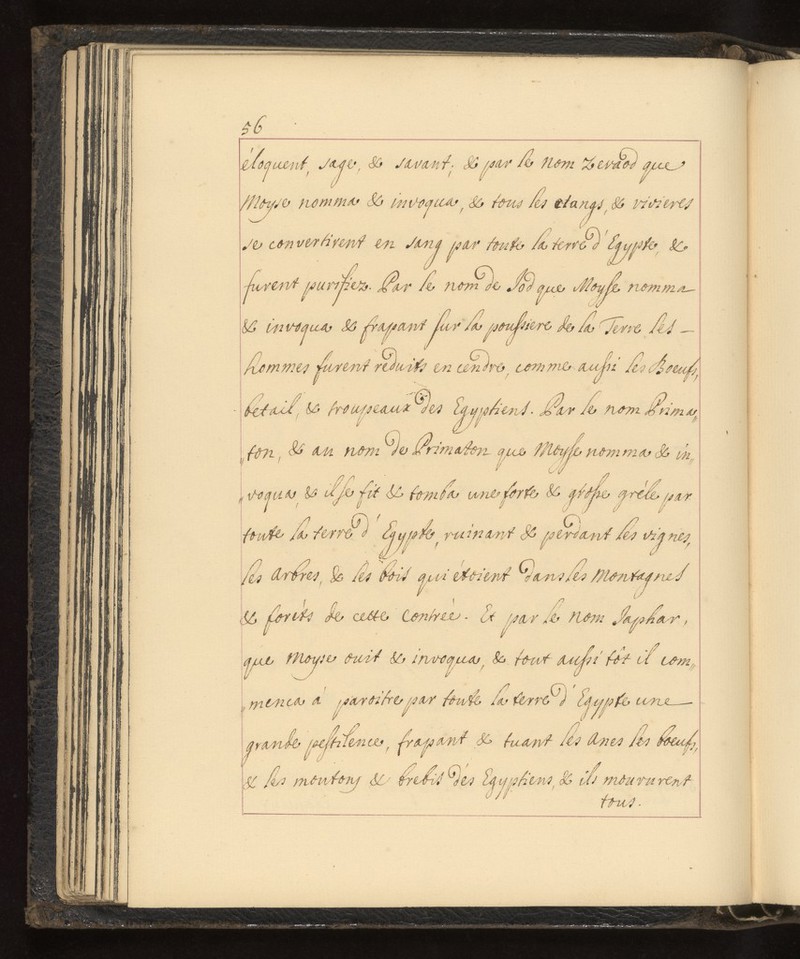 56
éloquent, sage, & savant; & par le nom Zevaod que
Moyse nomma & invoqua, & tous les etangs, & vivieres
se convertirent en sang par toute la terre d'Egypte, &
furent purifiez. Par le nom de Jod que Moyse nomma
& invoqua & frapant sur la poussiere de la Terre les —
hommes furent réduits en cendre, comme aussi les Boeufs,
betail, & troupeaux des Egyptiens. Par le nom Prima„
„ton, & au nom de Primaton que Moyse nomma & in„
„voqua, & il se fit & tomba une forte & grosse gréle par
toute la terre d'Egypte, ruinant & perdant les vignes,
les arbres, & les bois qui étoient dans les Montagnes
& foréts de cette Contrée. Et par le nom Japhar,
que Moyse ouit & invoqua, & tout aussi tôt il com„
„menca à paroitre par toute la terre d'Egypte une —
grande pestilence, frapant & tuant les anes les boeufs,
& les moutons & brebis des Egyptiens, & ils moururent
tous.